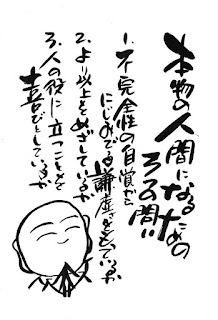 本物の人間になるための
3つの問!!
1、不完全性の自覚から
にじみでる謙虚さをもっているか
2、より以上をめざしているか
3、人の役に立つことを
喜びとしているか